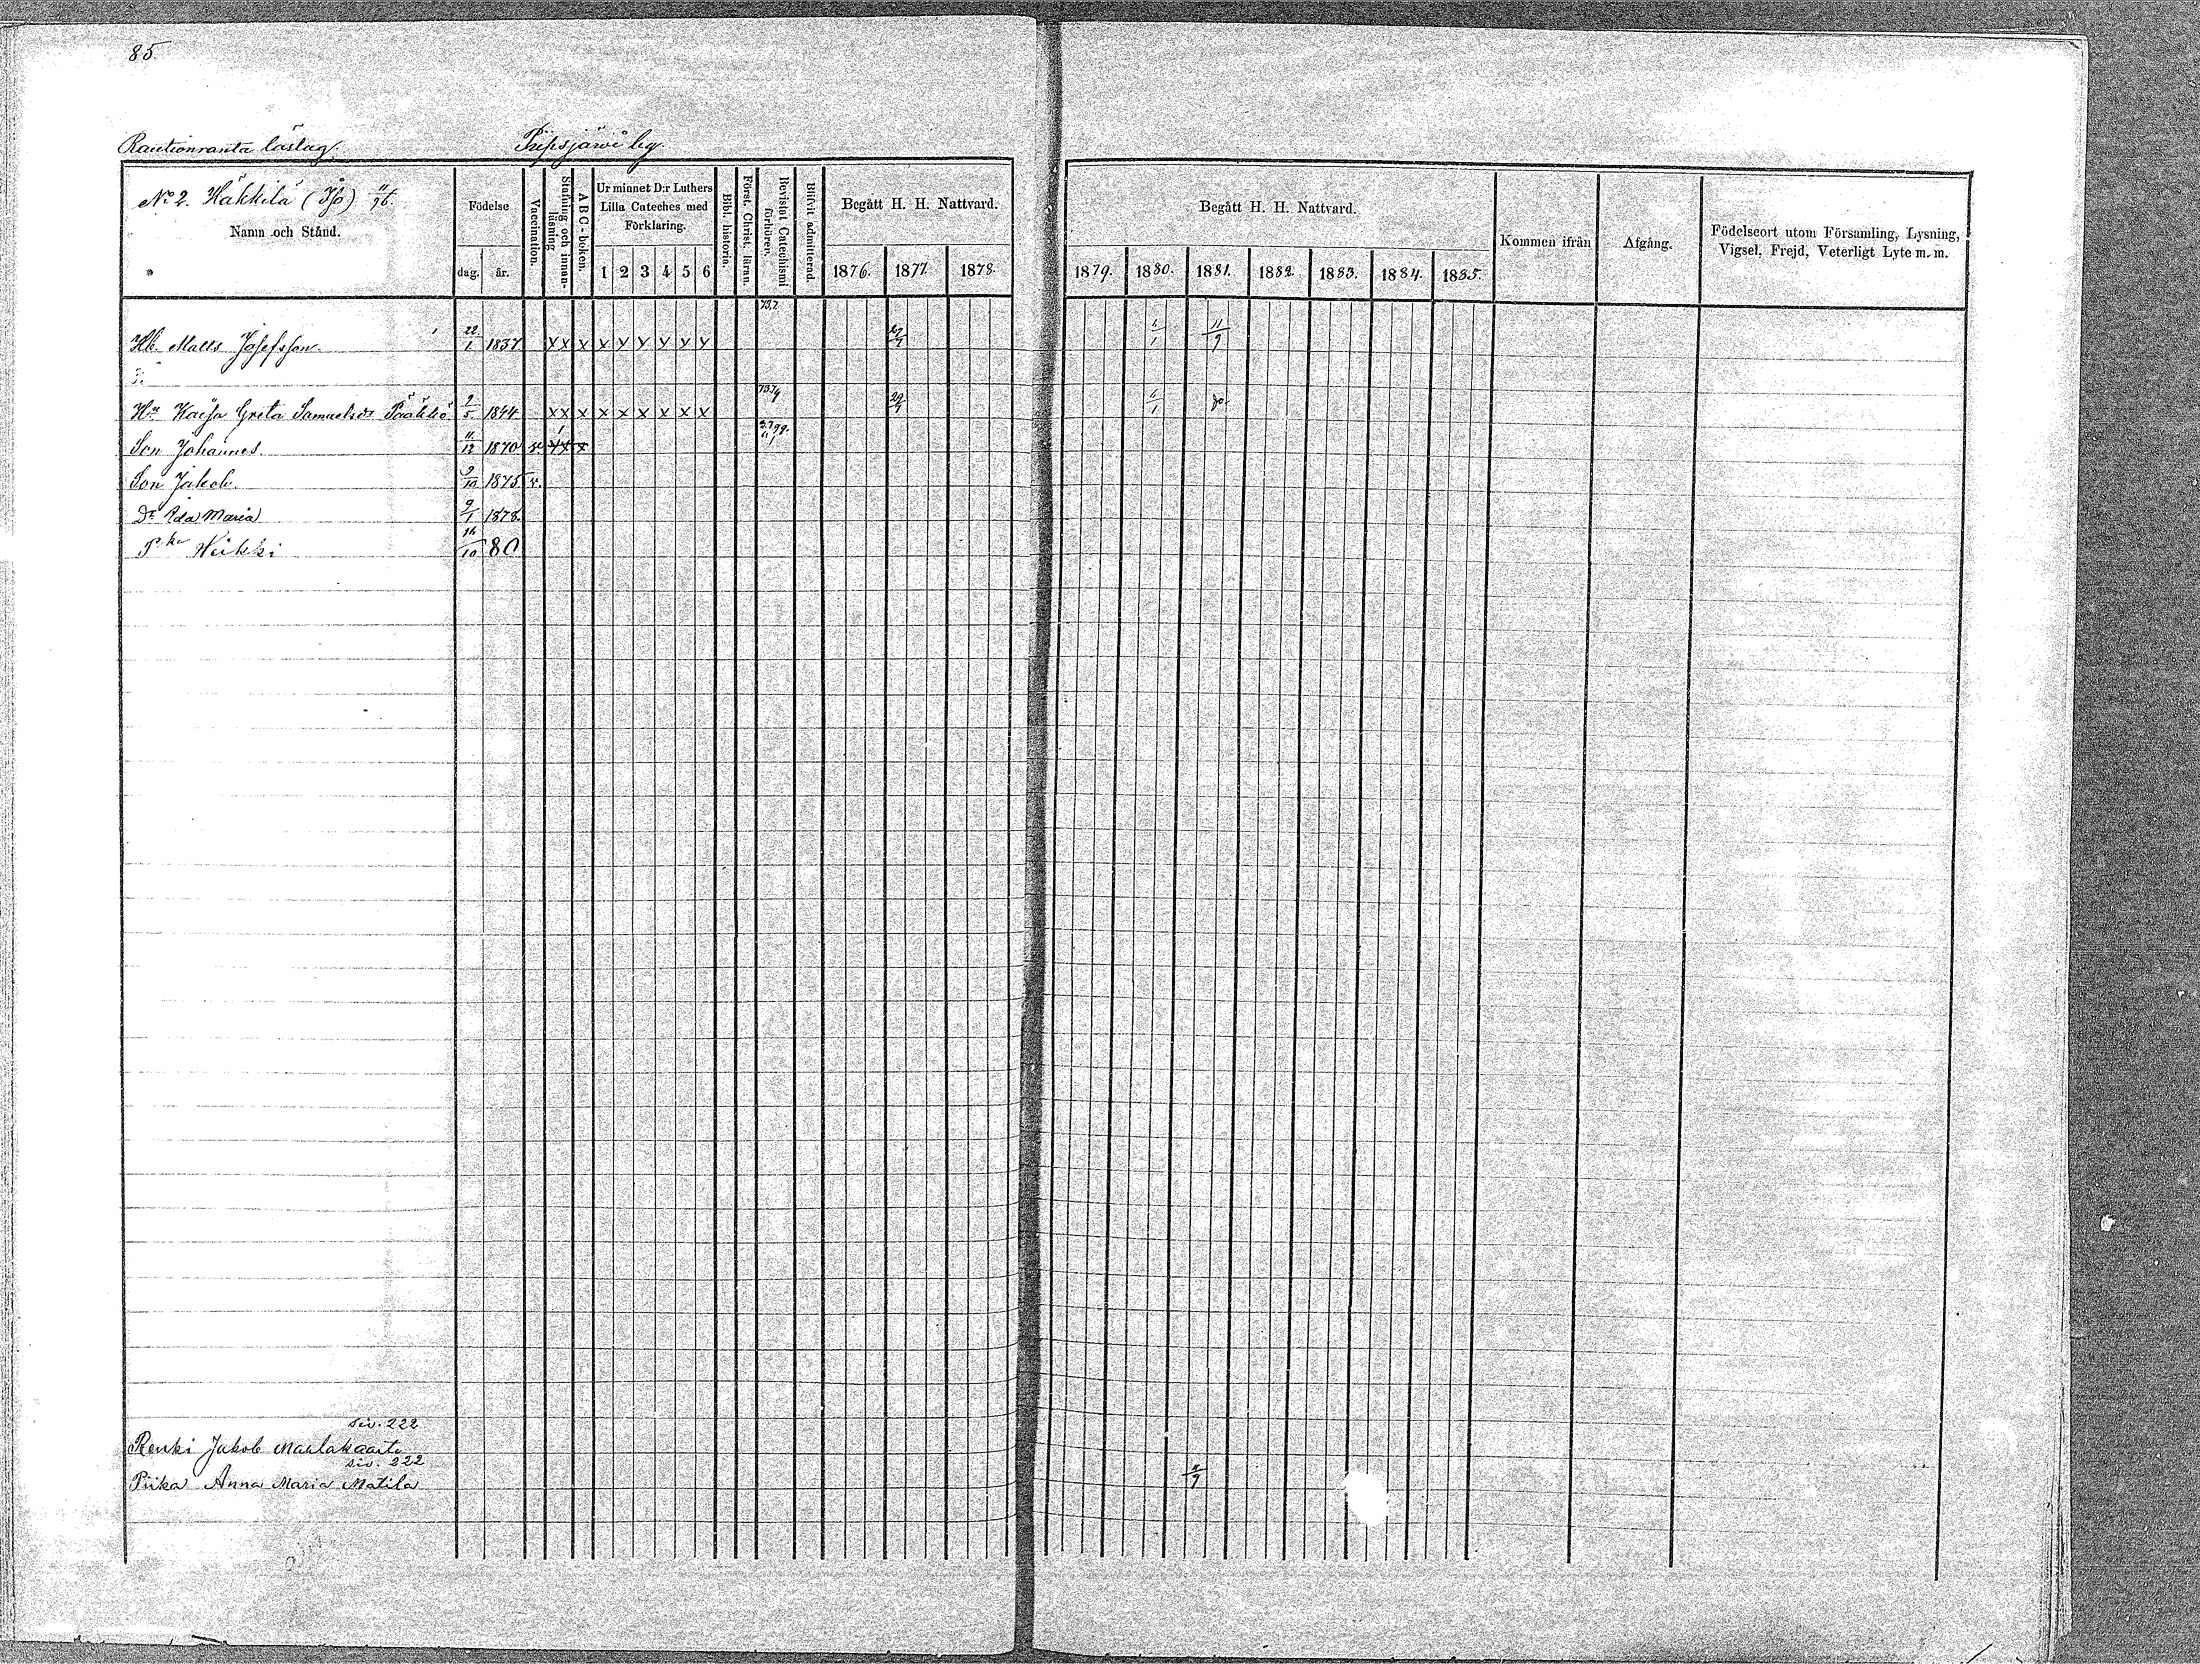 85.
Rautionranta läslag. Pipsjärvi by.
No 2. Häkkilä (Jp) 11/96.
Namn och Stånd.
Födelse
dag. år.
Vaccination.
Stafning och innanläsning
A B C-boken.
Ur minnet D:r Luthers Lilla Cateches med Förklaring.
1 2 3 4 5 6
Bibl. historia.
Först. Christ. läran.
Bevistat Catechismi förhören.
Blifvit admitterad.
Begått H. H. Nattvard.
1876. 1877. 1878.
Begått H. H. Nattvard.
1879. 1880. 1881. 1882. 1883. 1884. 1885.
Kommen ifrån
Afgång.
Födelseort utom Församling, Lysning, Vigsel, Frejd, Veterligt Lyte m. m.
Hb. Matts Josefsson 22/1 1837 x x x x x x x x x 11/9
Hu Kaisa Greta Samuelsdr Pääkkö 2/5 1844 x x x x x x x x x 29/7 do
Son Johannes 11/12 1870 v x x x
Son Jakob 9/10 1875 v.
Dr Ida Maria 9/1 1878.
Pka Heikki 16/10 80
siv. 222
Renki Jakob Marlakaarto
siv. 222
Piika Anna Maria Matila